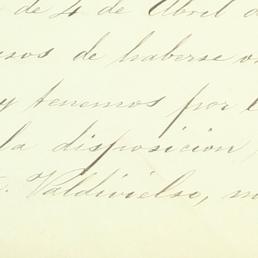 de 4 de Abril d
de haberse
y tenemos por
la disposicion,
Valdivielso,